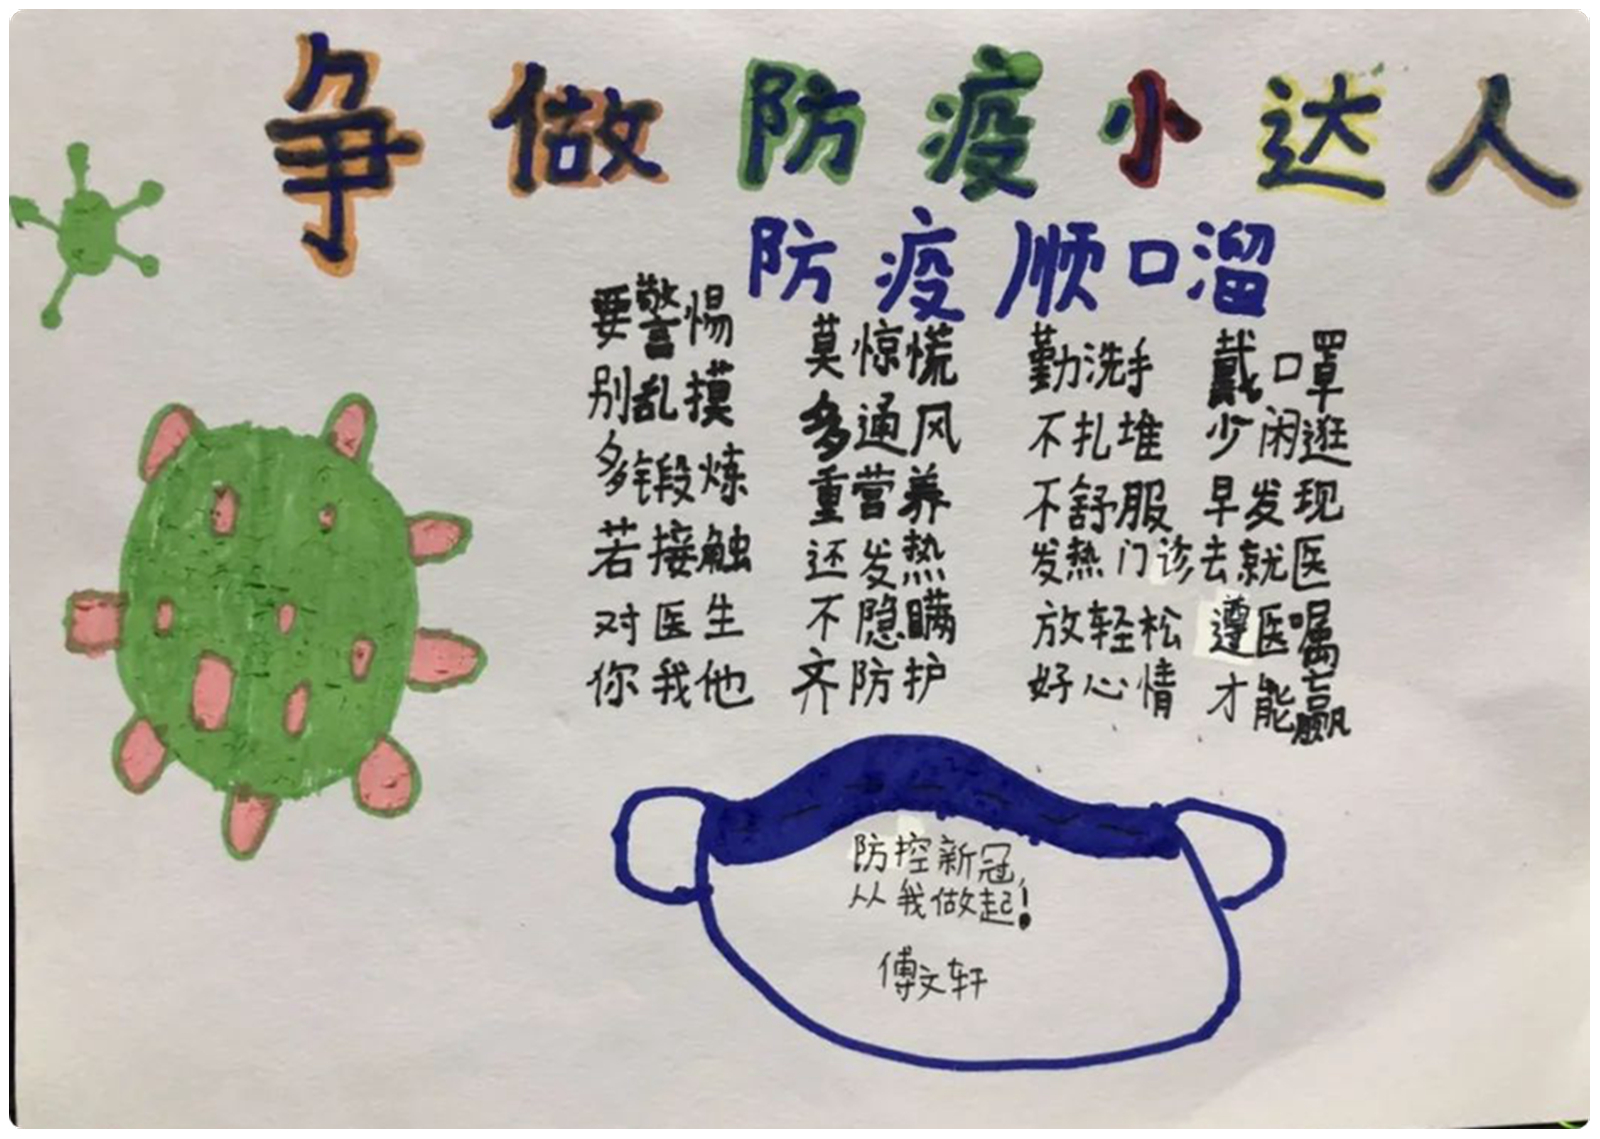 争做防疫小达人
防疫顺口溜
要警惕 莫惊慌 勤洗手 戴口罩
别乱摸 多通风 不扎堆 少闲逛
多锻炼 重营养 不舒服 早发现
若接触 还发热 发热门诊去就医
对医生 不隐瞒 放轻松 遵医嘱
你我他 齐防护 好心情 才能赢
防控新冠,
从我做起!
傅文轩